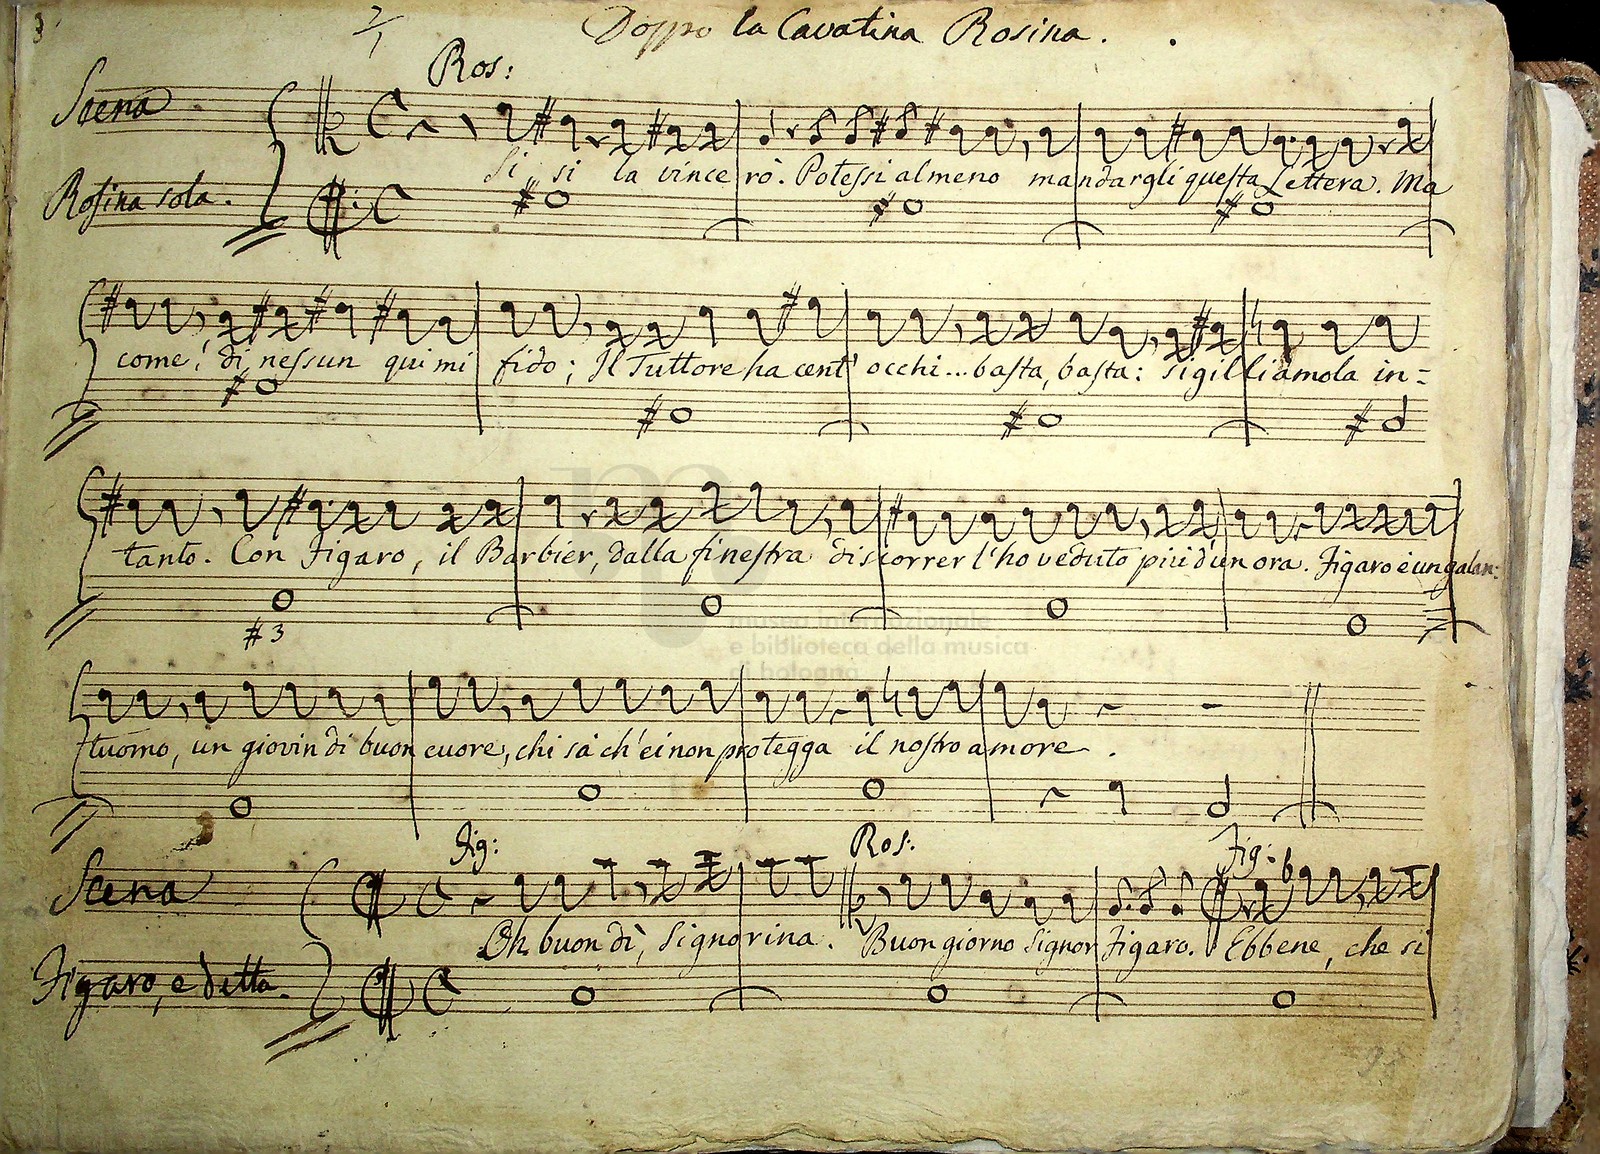 3
2/1
Doppo la Cavatina Rosina.
Ros:
Scena
Rosina sola.
Si si la vincerò. Potessi almeno mandargli questa Lettera. Ma
come! di nessun qui mi fido; Il Tuttore ha cent' occhi... basta, basta: sigilliamola in=
tanto. Con Figaro, il Barbier, dalla finestra discorrer l'ho veduto più d'un ora. Figaro è un galan:
#3
tuomo, un giovin di buon cuore, chi sà ch'ei non protegga il nostro amore.
museo internazionale
e biblioteca della musica
di bologna
Fig: Ros: Fig:
Scena
Oh buon dì, Signorina. Buon giorno Signor Figaro. Ebbene, che si
Figaro, e detta.